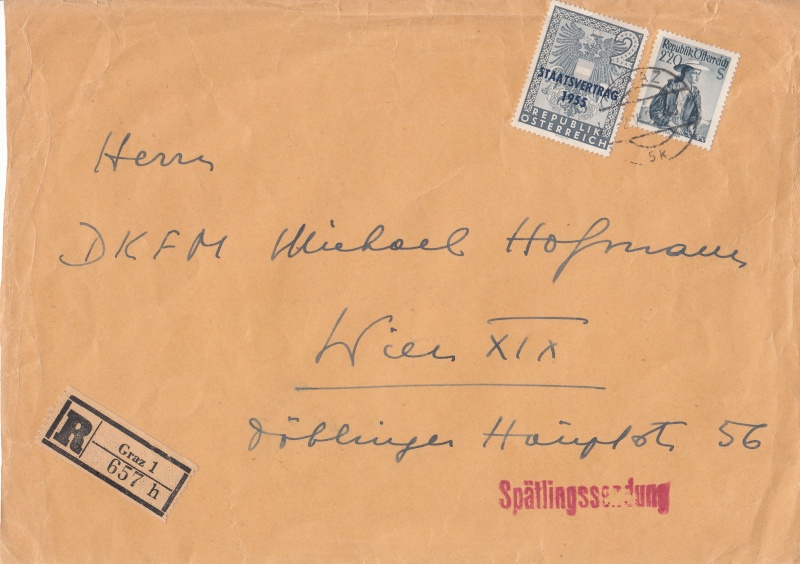 2
STAATSVERTRAG
1955
REPUBLIK
ÖSTERREICH
Republik Österreich
2.20
S
Herrn
DKFM Michael Hofmann
Wien XIX
Döblinger Hauptstr 56
R
Graz 1
657 h
Spätlingssendung